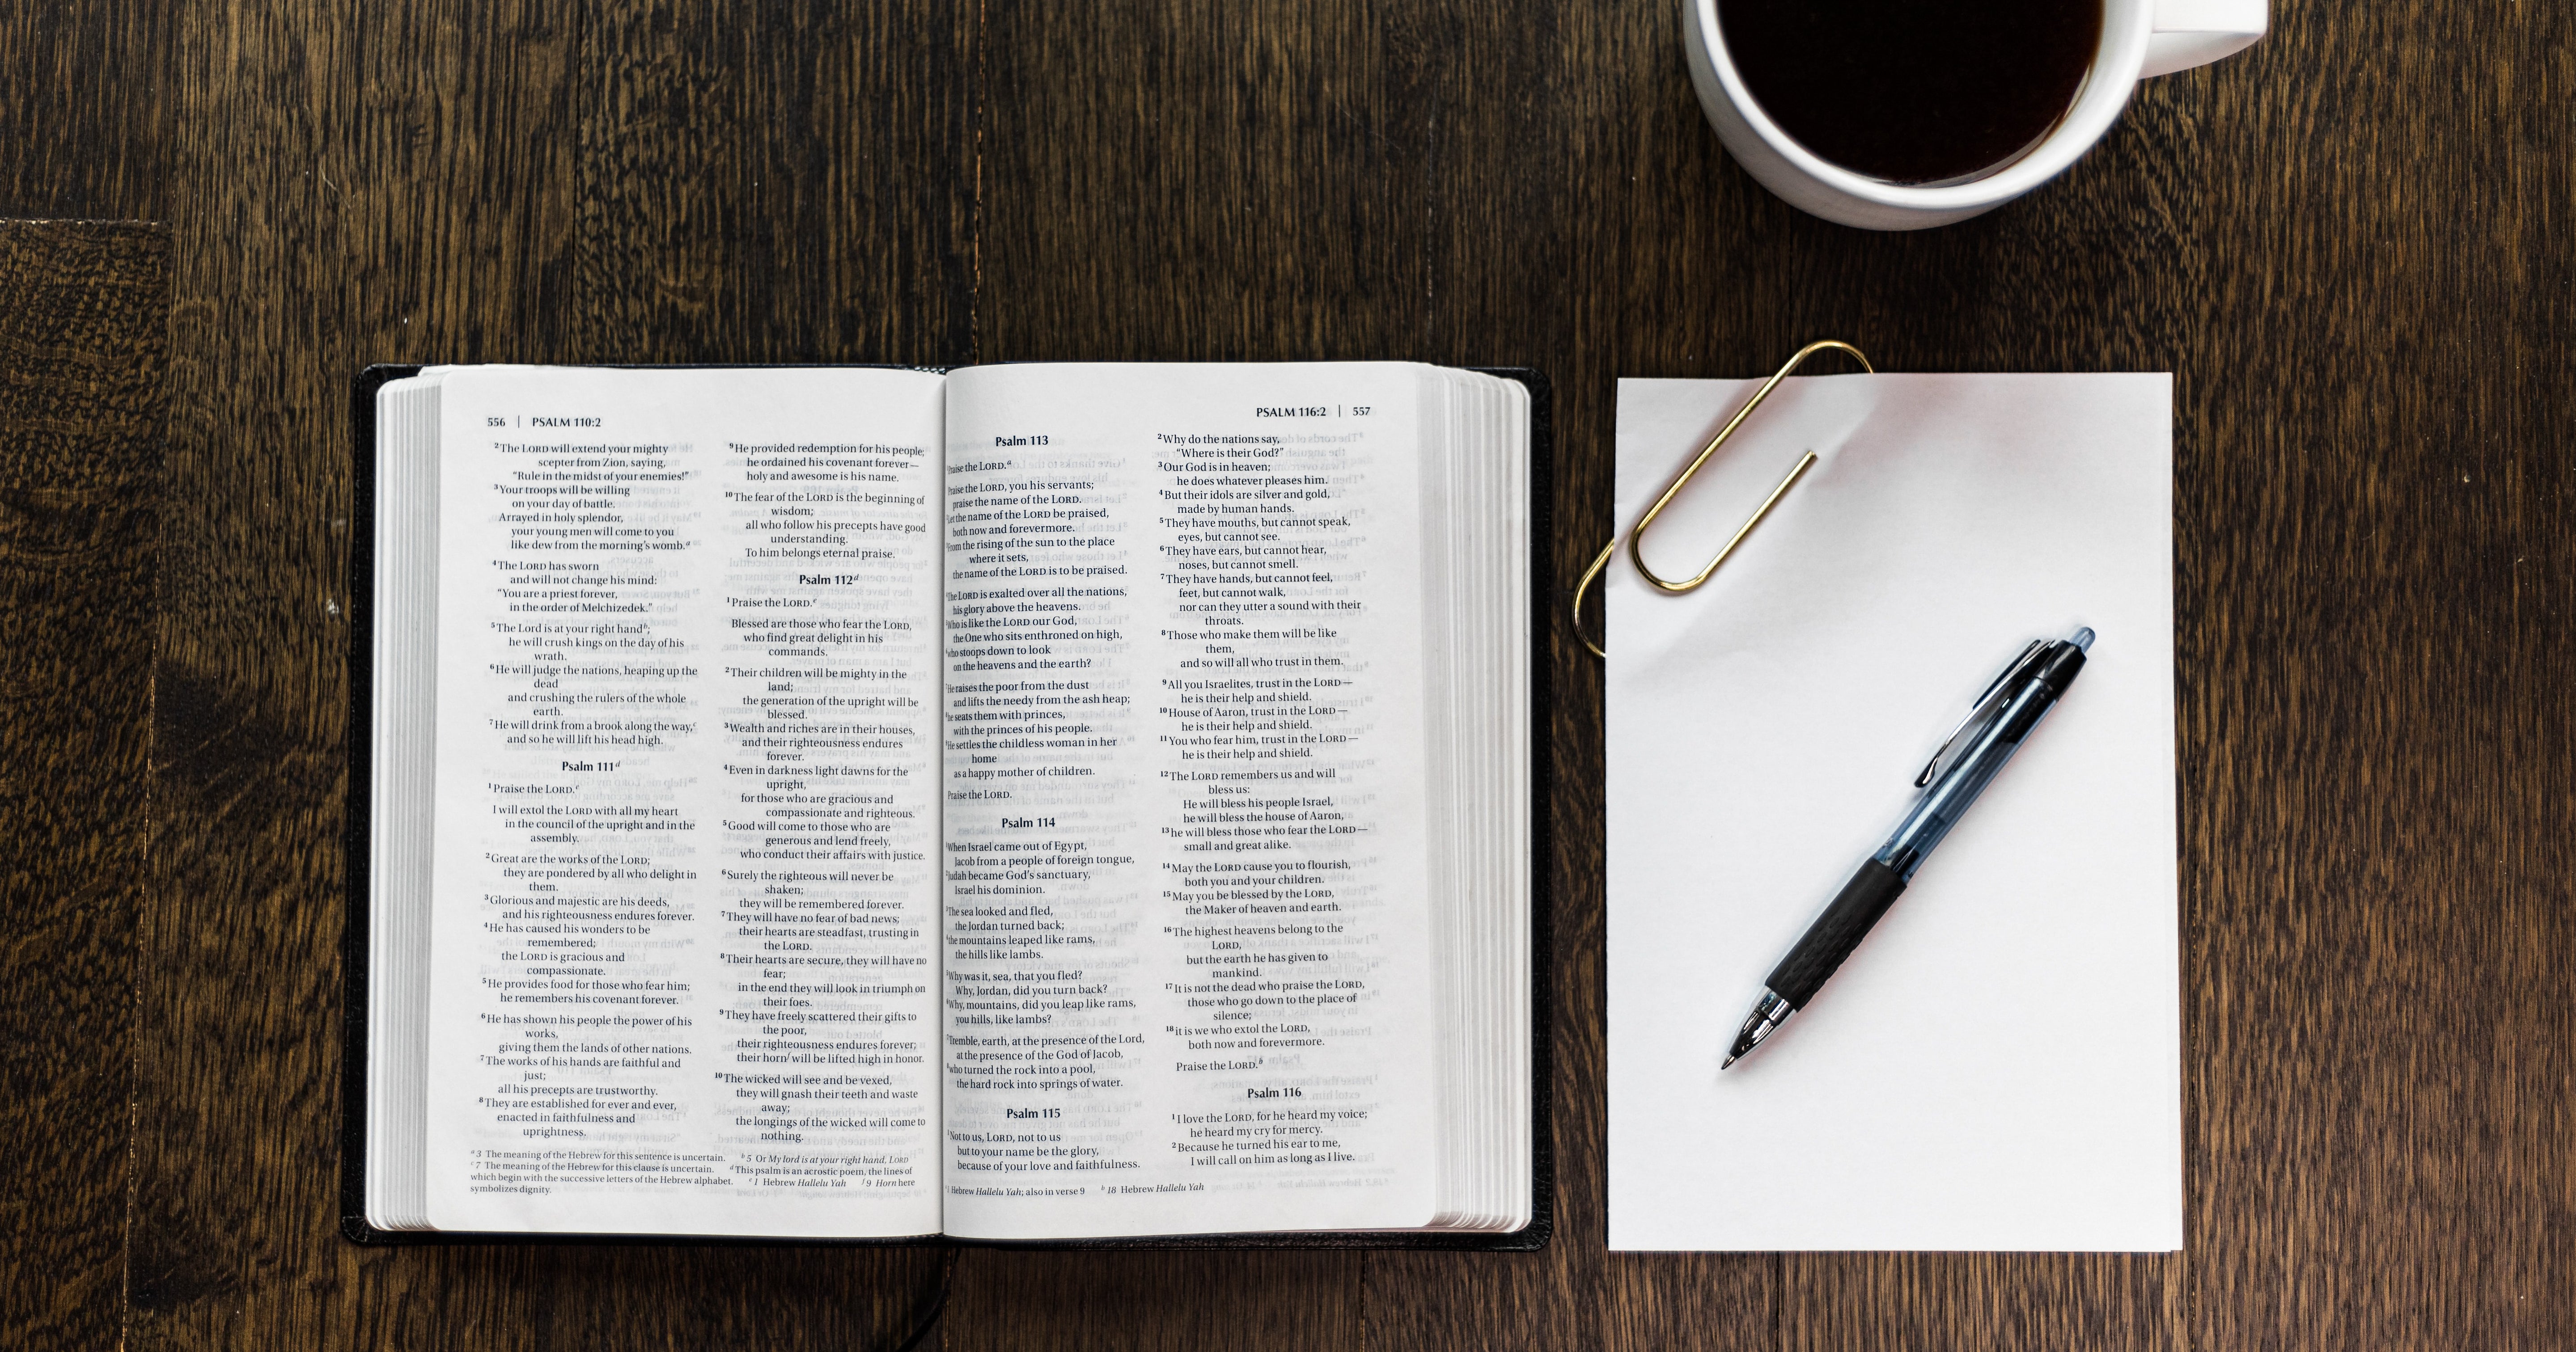 556 | PSALM 110:2
²The LORD will extend your mighty
scepter from Zion, saying,
“Rule in the midst of your enemies!”
³Your troops will be willing
on your day of battle.
Arrayed in holy splendor,
your young men will come to you
like dew from the morning’s womb.ᵃ
⁴The LORD has sworn
and will not change his mind:
“You are a priest forever,
in the order of Melchizedek.”
⁵The Lord is at your right handᵇ;
he will crush kings on the day of his
wrath.
⁶He will judge the nations, heaping up the
dead
and crushing the rulers of the whole
earth.
⁷He will drink from a brook along the way,ᶜ
and so he will lift his head high.
Psalm 111ᵈ
¹Praise the LORD.ᵉ
I will extol the LORD with all my heart
in the council of the upright and in the
assembly.
²Great are the works of the LORD;
they are pondered by all who delight in
them.
³Glorious and majestic are his deeds,
and his righteousness endures forever.
⁴He has caused his wonders to be
remembered;
the LORD is gracious and
compassionate.
⁵He provides food for those who fear him;
he remembers his covenant forever.
⁶He has shown his people the power of his
works,
giving them the lands of other nations.
⁷The works of his hands are faithful and
just;
all his precepts are trustworthy.
⁸They are established for ever and ever,
enacted in faithfulness and
uprightness.
⁹He provided redemption for his people;
he ordained his covenant forever—
holy and awesome is his name.
¹⁰The fear of the LORD is the beginning of
wisdom;
all who follow his precepts have good
understanding.
To him belongs eternal praise.
Psalm 112ᵈ
¹Praise the LORD.ᵉ
Blessed are those who fear the LORD,
who find great delight in his
commands.
²Their children will be mighty in the
land;
the generation of the upright will be
blessed.
³Wealth and riches are in their houses,
and their righteousness endures
forever.
⁴Even in darkness light dawns for the
upright,
for those who are gracious and
compassionate and righteous.
⁵Good will come to those who are
generous and lend freely,
who conduct their affairs with justice.
⁶Surely the righteous will never be
shaken;
they will be remembered forever.
⁷They will have no fear of bad news;
their hearts are steadfast, trusting in
the LORD.
⁸Their hearts are secure, they will have no
fear;
in the end they will look in triumph on
their foes.
⁹They have freely scattered their gifts to
the poor,
their righteousness endures forever;
their hornᶠ will be lifted high in honor.
¹⁰The wicked will see and be vexed,
they will gnash their teeth and waste
away;
the longings of the wicked will come to
nothing.
ᵃ 3 The meaning of the Hebrew for this sentence is uncertain. ᵇ 5 Or My lord is at your right hand, LORD
ᶜ 7 The meaning of the Hebrew for this clause is uncertain. ᵈ This psalm is an acrostic poem, the lines of
which begin with the successive letters of the Hebrew alphabet. ᵉ 1 Hebrew Hallelu Yah ᶠ 9 Horn here
symbolizes dignity.
PSALM 116:2 | 557
Psalm 113
Praise the LORD.ᵃ
Praise the LORD, you his servants;
praise the name of the LORD.
Let the name of the LORD be praised,
both now and forevermore.
From the rising of the sun to the place
where it sets,
the name of the LORD is to be praised.
The LORD is exalted over all the nations,
his glory above the heavens.
Who is like the LORD our God,
the One who sits enthroned on high,
who stoops down to look
on the heavens and the earth?
He raises the poor from the dust
and lifts the needy from the ash heap;
he seats them with princes,
with the princes of his people.
He settles the childless woman in her
home
as a happy mother of children.
Praise the LORD.
Psalm 114
When Israel came out of Egypt,
Jacob from a people of foreign tongue,
Judah became God’s sanctuary,
Israel his dominion.
The sea looked and fled,
the Jordan turned back;
the mountains leaped like rams,
the hills like lambs.
Why was it, sea, that you fled?
Why, Jordan, did you turn back?
Why, mountains, did you leap like rams,
you hills, like lambs?
Tremble, earth, at the presence of the Lord,
at the presence of the God of Jacob,
who turned the rock into a pool,
the hard rock into springs of water.
Psalm 115
Not to us, LORD, not to us
but to your name be the glory,
because of your love and faithfulness.
²Why do the nations say,
“Where is their God?”
³Our God is in heaven;
he does whatever pleases him.
⁴But their idols are silver and gold,
made by human hands.
⁵They have mouths, but cannot speak,
eyes, but cannot see.
⁶They have ears, but cannot hear,
noses, but cannot smell.
⁷They have hands, but cannot feel,
feet, but cannot walk,
nor can they utter a sound with their
throats.
⁸Those who make them will be like
them,
and so will all who trust in them.
⁹All you Israelites, trust in the LORD—
he is their help and shield.
¹⁰House of Aaron, trust in the LORD—
he is their help and shield.
¹¹You who fear him, trust in the LORD—
he is their help and shield.
¹²The LORD remembers us and will
bless us:
He will bless his people Israel,
he will bless the house of Aaron,
¹³he will bless those who fear the LORD—
small and great alike.
¹⁴May the LORD cause you to flourish,
both you and your children.
¹⁵May you be blessed by the LORD,
the Maker of heaven and earth.
¹⁶The highest heavens belong to the
LORD,
but the earth he has given to
mankind.
¹⁷It is not the dead who praise the LORD,
those who go down to the place of
silence;
¹⁸it is we who extol the LORD,
both now and forevermore.
Praise the LORD.ᵇ
Psalm 116
¹I love the LORD, for he heard my voice;
he heard my cry for mercy.
²Because he turned his ear to me,
I will call on him as long as I live.
1 Hebrew Hallelu Yah; also in verse 9 ᵇ 18 Hebrew Hallelu Yah